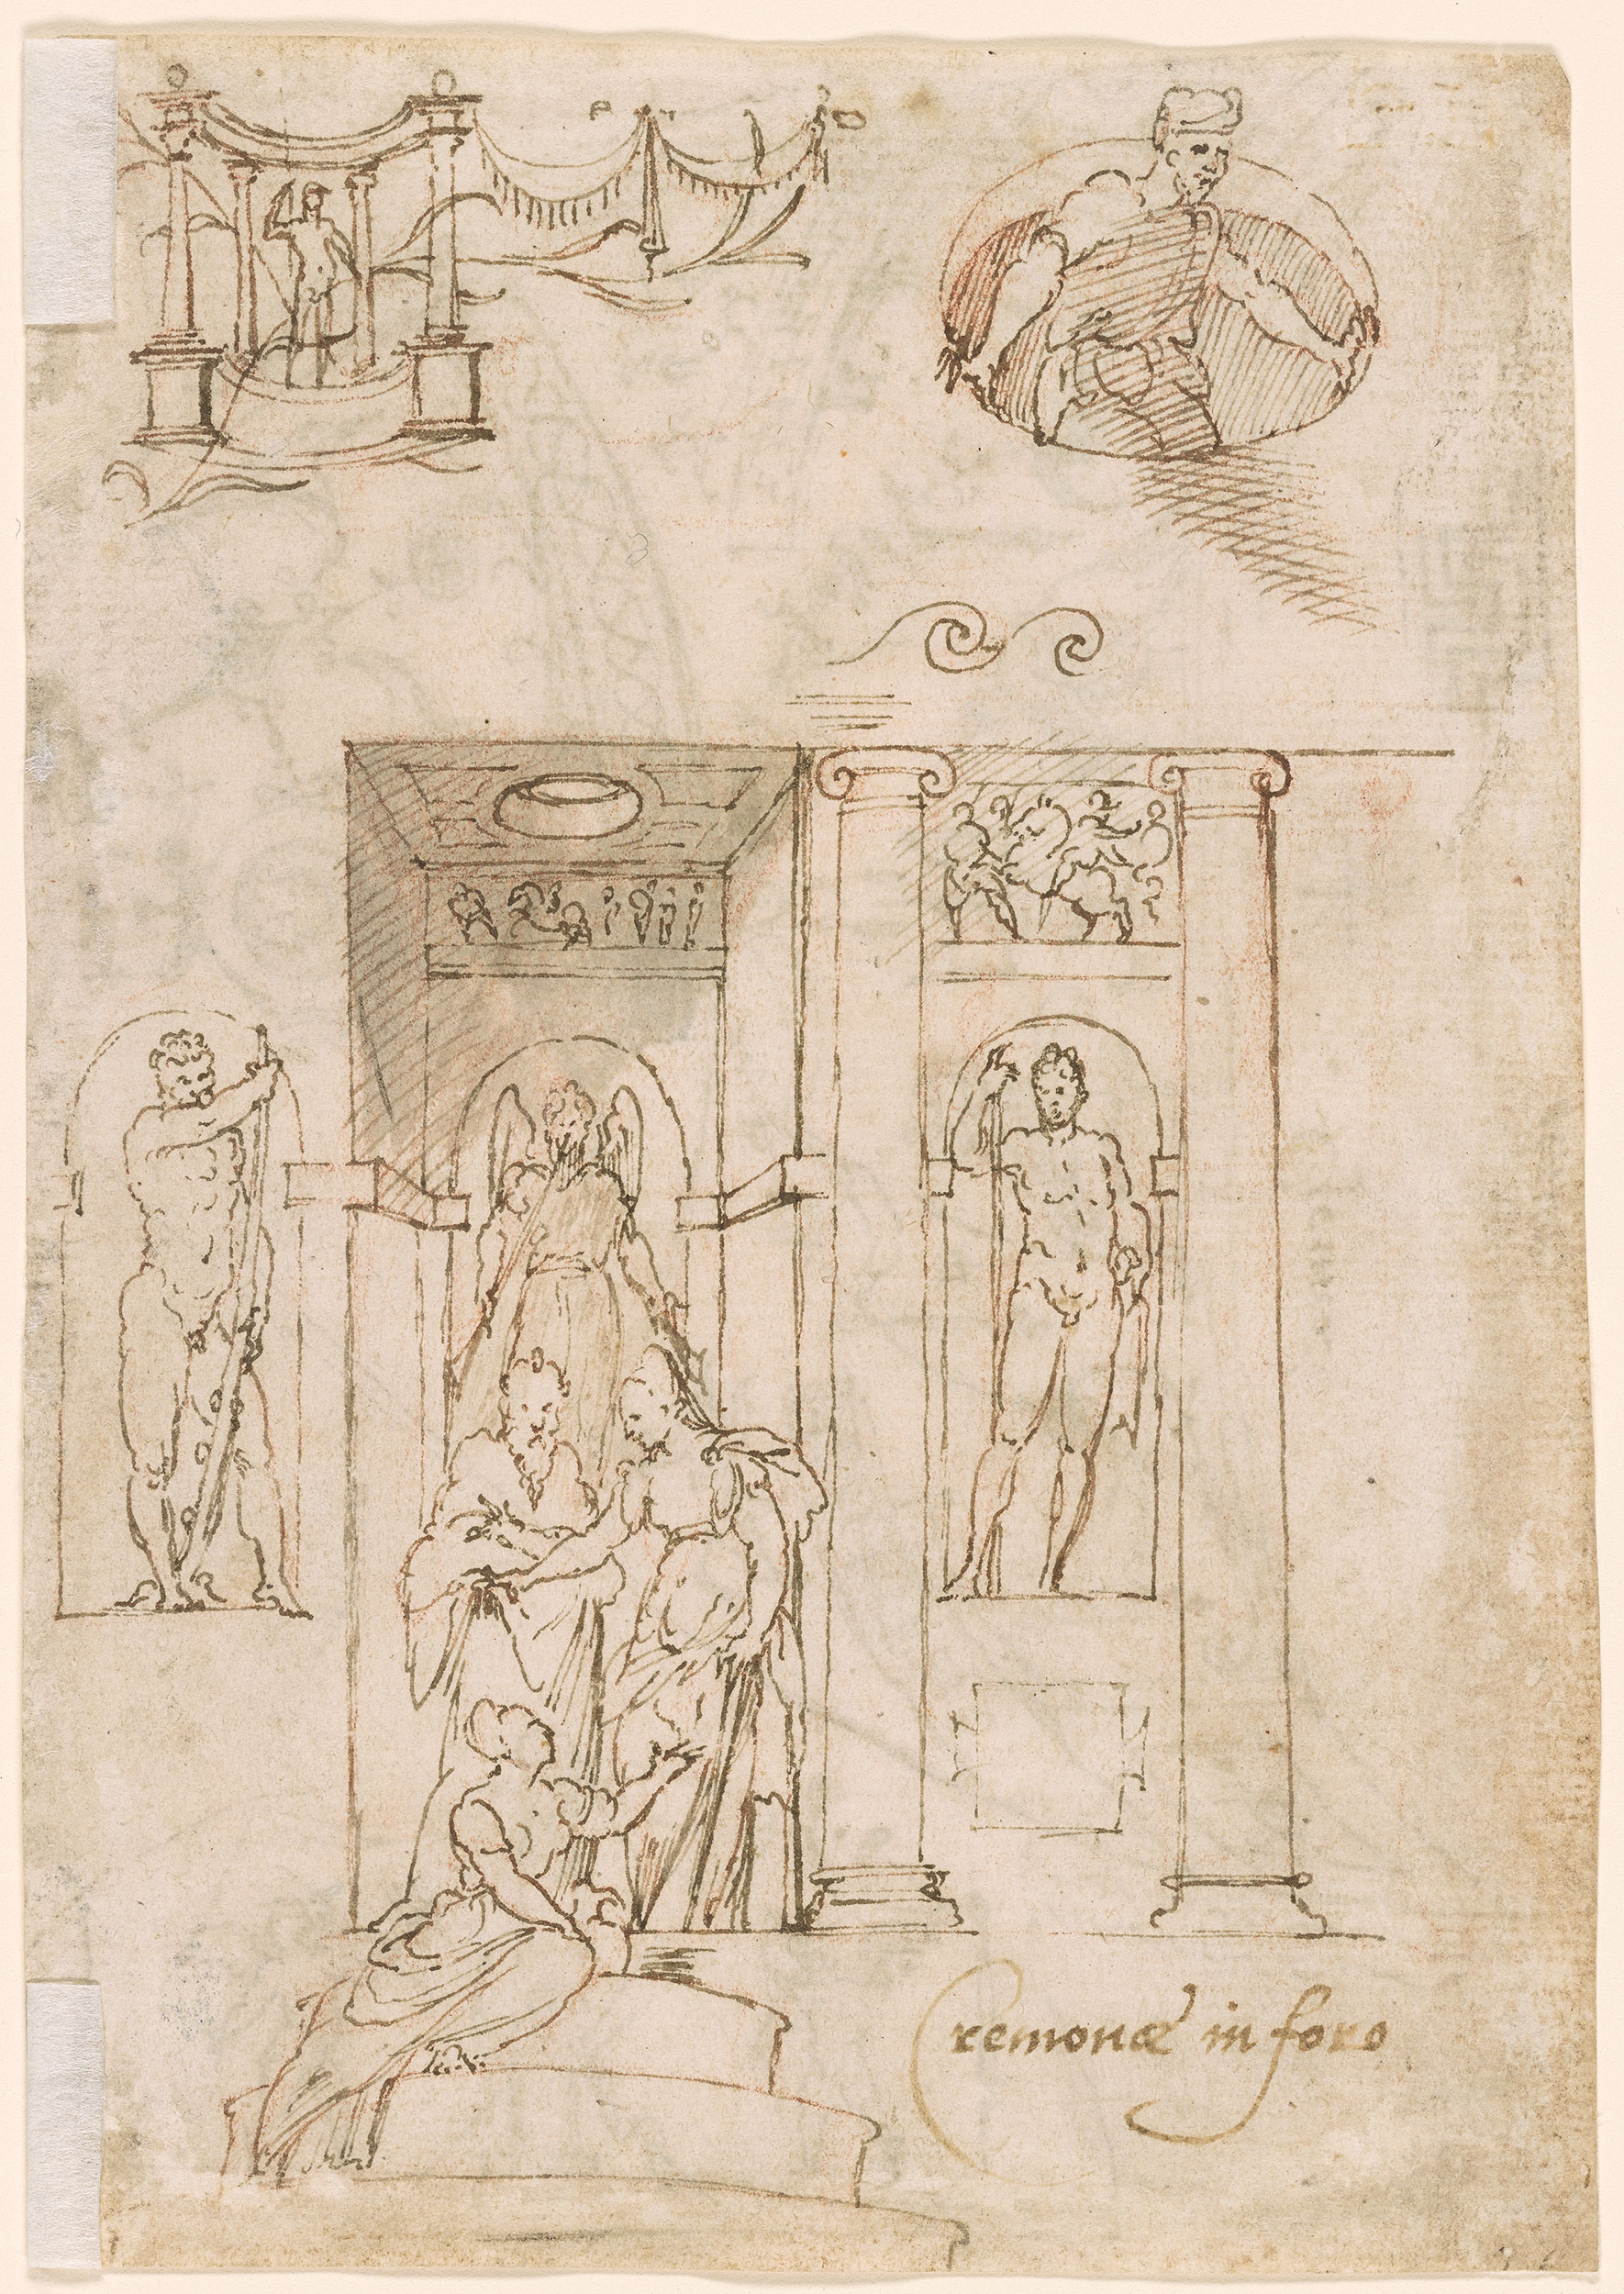 Cremonæ in foro